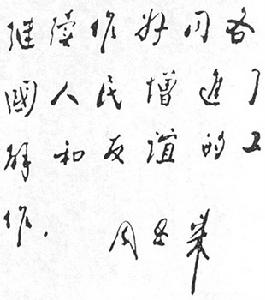 继续作好同各
國人民增進了
解和友谊的工
作.
周恩来